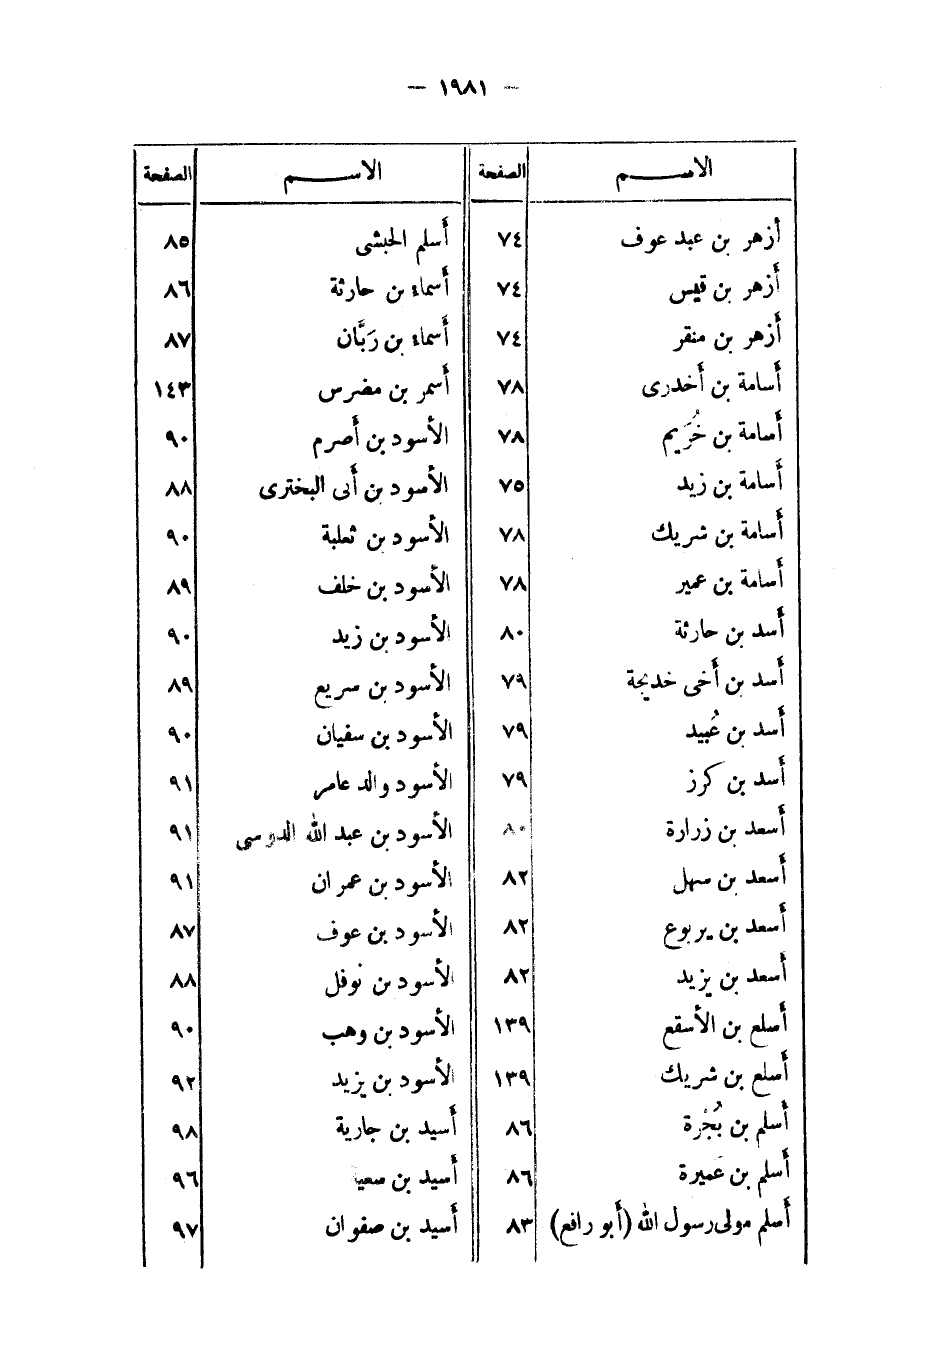 — ١٩٨١ —
الاســـم الصفحة الاســـم الصفحة
أزهر بن عبد عوف ٧٤ أسلم الحبشى ٨٥
أزهر بن قيس ٧٤ أسماء بن حارثة ٨٦
أزهر بن منقر ٧٤ أسماء بن رَبَّان ٨٧
أسامة بن أخدرى ٧٨ أسمر بن مضرس ١٤٣
أسامة بن خُرَيم ٧٨ الأسود بن أصرم ٩٠
أسامة بن زيد ٧٥ الأسود بن أبى البخترى ٨٨
أسامة بن شريك ٧٨ الأسود بن ثعلبة ٩٠
أسامة بن عمير ٧٨ الأسود بن خلف ٨٩
أسد بن حارثة ٨٠ الأسود بن زيد ٩٠
أسد بن أخى خديجة ٧٩ الأسود بن سريع ٨٩
أسد بن عُبيد ٧٩ الأسود بن سفيان ٩٠
أسد بن كرز ٧٩ الأسود والد عامر ٩١
أسعد بن زرارة ٨٠ الأسود بن عبد الله الدوسى ٩١
أسعد بن سهل ٨٢ الأسود بن عمران ٩١
أسعد بن يربوع ٨٢ الأسود بن عوف ٨٧
أسعد بن يزيد ٨٢ الأسود بن نوفل ٨٨
أسلع بن الأسقع ١٣٩ الأسود بن وهب ٩٠
أسلع بن شريك ١٣٩ الأسود بن يزيد ٩٢
أسلم بن بُجْرة ٨٦ أسيد بن جارية ٩٨
أسلم بن عَميرة ٨٦ أسيد بن سعية ٩٦
أسلم مولى رسول الله (أبو رافع) ٨٣ أسيد بن صفوان ٩٧